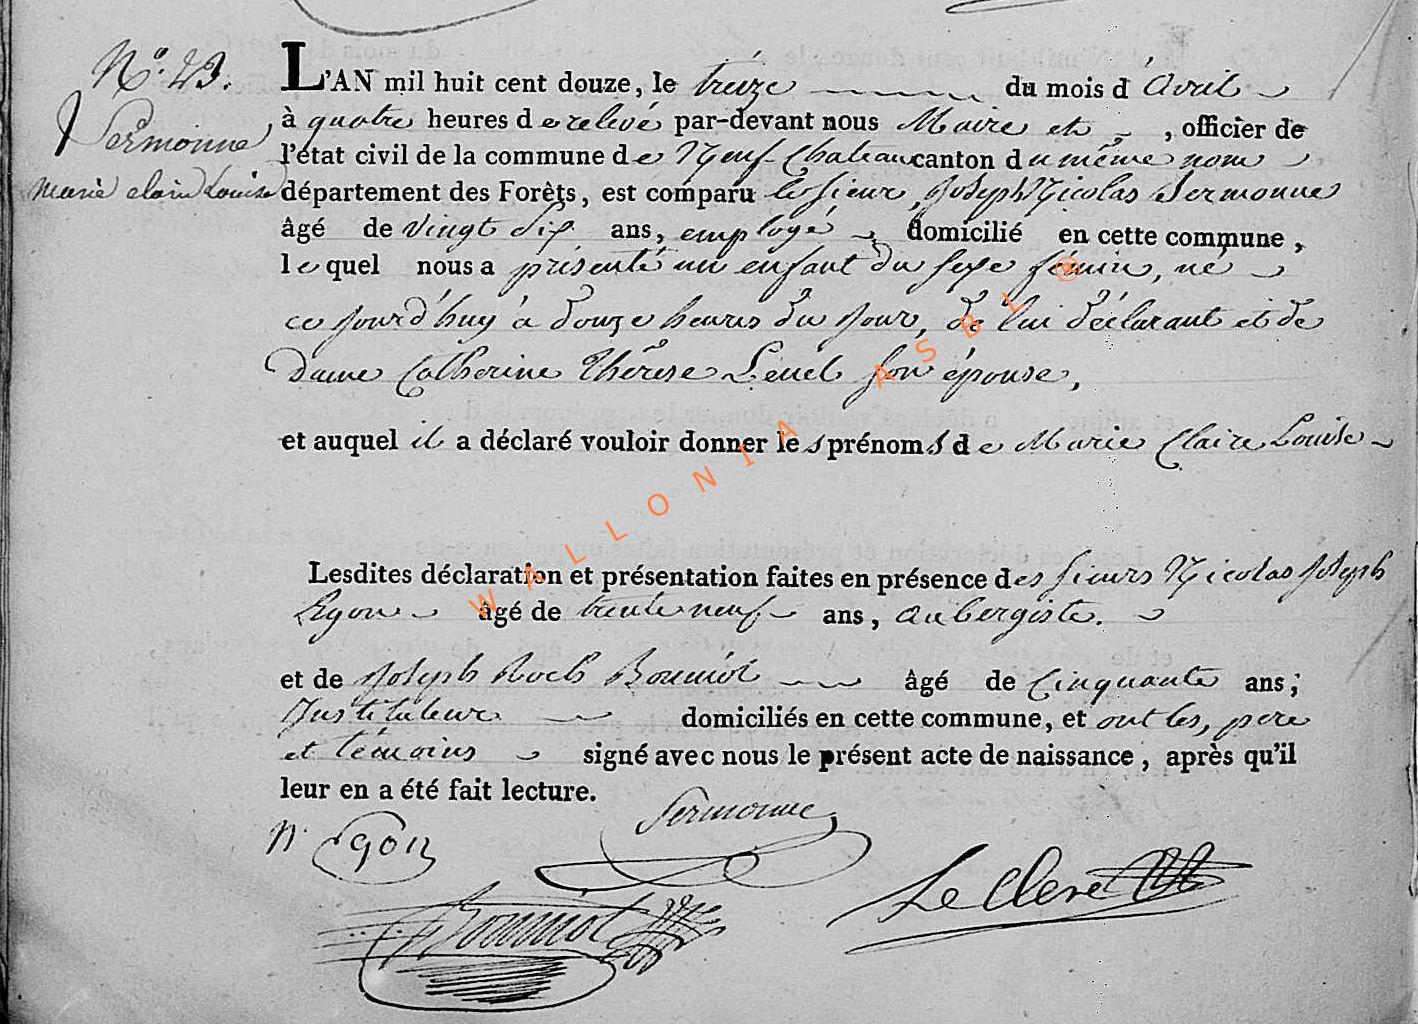 N.º 23.
Sermonne
Marie claire Louise
L'AN mil huit cent douze, le treize du mois d'Avril
à quatre heures de relevé par-devant nous Maire et , officier de
l'état civil de la commune de Neuf-Chateau canton du même nom
département des Forêts, est comparu le sieur, Joseph Nicolas Sermonne
âgé de vingt six ans, employé domicilié en cette commune,
lequel nous a présenté un enfant du sexe féminin, né
ce jourd'huy à douze heures du jour, de lui déclarant et de
Dame Catherine Thérese Lenel son épouse,
et auquel il a déclaré vouloir donner les prénoms de Marie Claire Louise
Lesdites déclaration et présentation faites en présence des sieurs Nicolas Joseph
Egon âgé de trente neuf ans, aubergiste.
et de Joseph Roch Bouniol âgé de Cinquante ans;
Instituteur domiciliés en cette commune, et ont les, pere
et témoins signé avec nous le présent acte de naissance, après qu'il
leur en a été fait lecture.
Sermonne
N. Egon
Le Clerc
Bouniol
WALLONIA ASBL ®